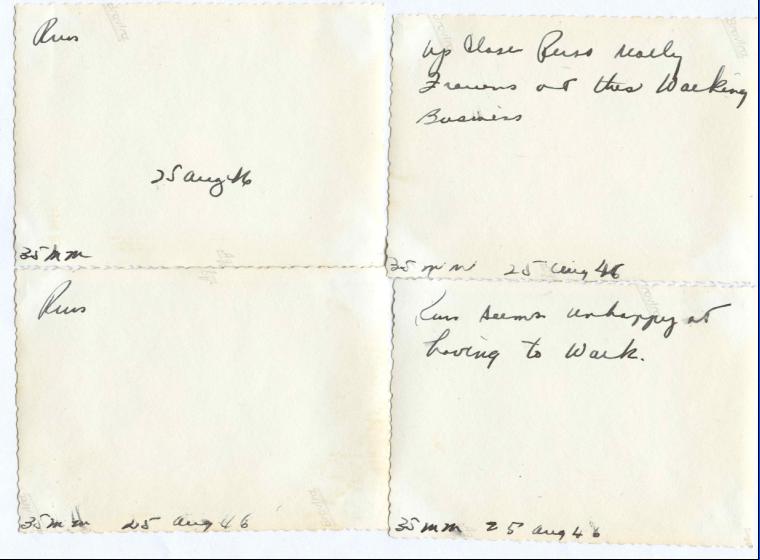 Russ
25 Aug 46
35 mm
Up Close Russ really
Frowns at this Working
Business
35 mm 25 Aug 46
Russ
35 mm 25 Aug 46
Russ seems unhappy at
having to Work.
35 mm 25 Aug 46